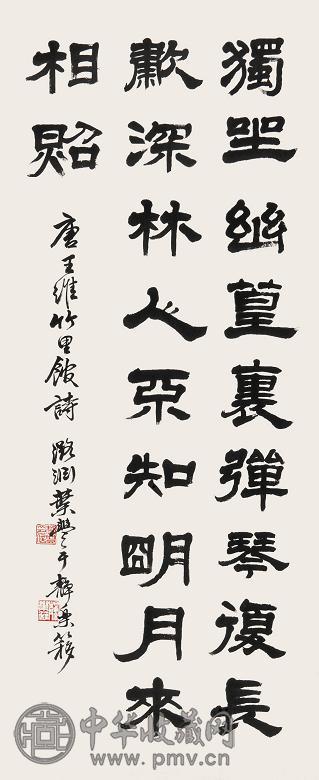 獨坐幽篁裏彈琴復長
歗深林人不知朙月來
相照
唐王維竹里館詩 葉豐于靜樂簃
中华收藏网
www.pmv.cn